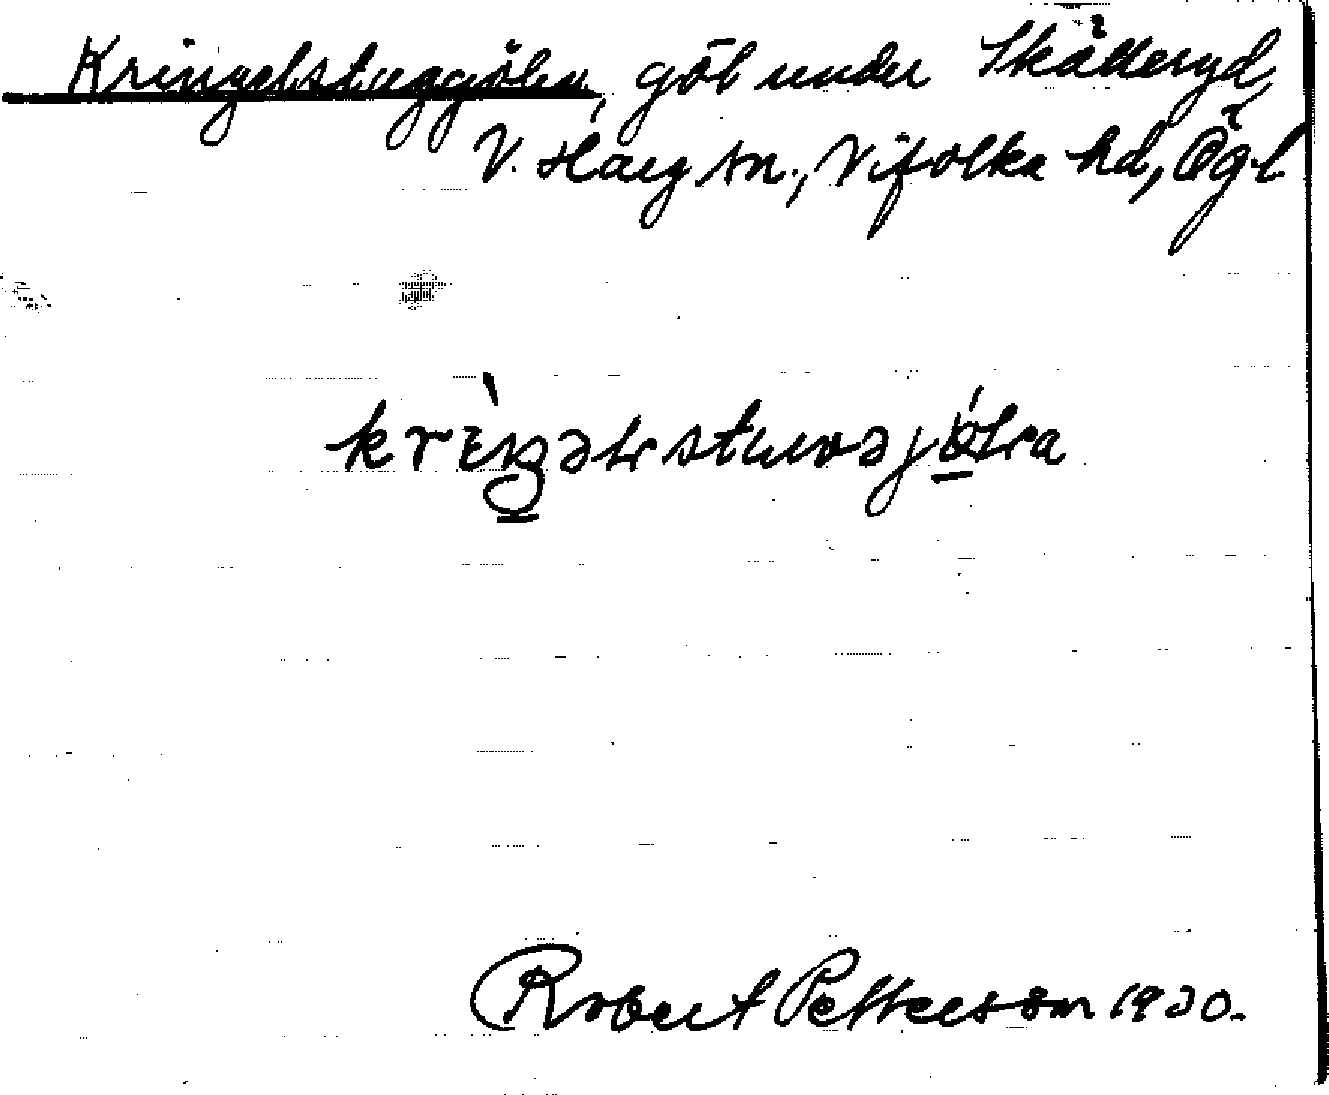 Kringelstuggölen, göl under Skälleryd,
V. Harg sn., Vifolka hd, Ögl.
krìŋəlstuwəjǿla
Robert Petterson 1930.